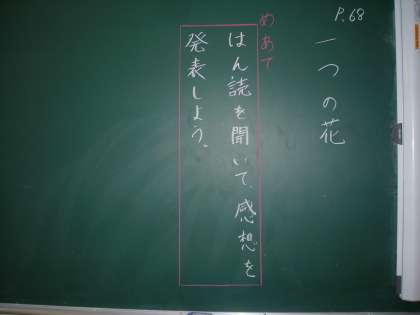 P.68
一つの花
めあて
はん読を聞いて、感想を
発表しよう。